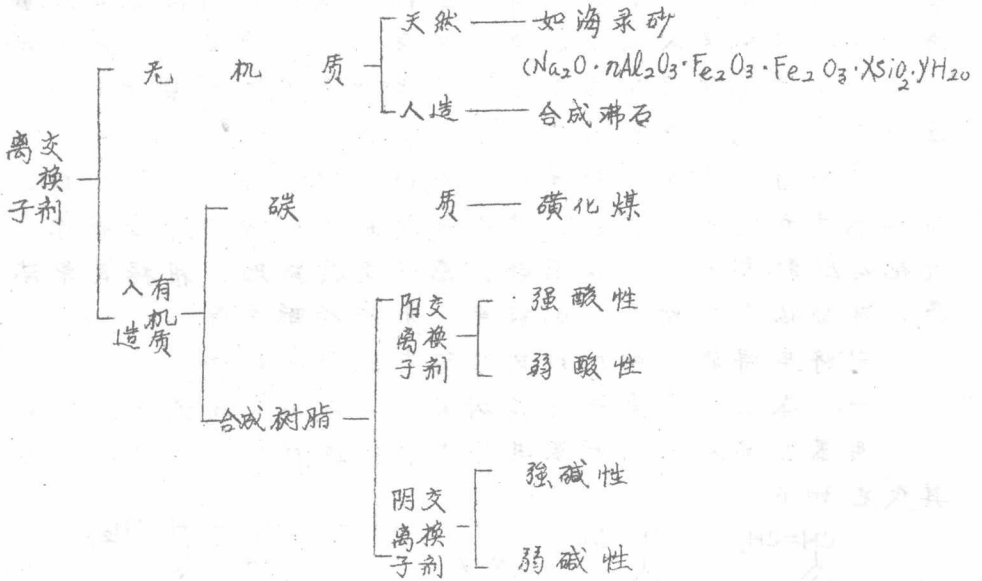 离子交换剂
无机质
天然——如海录砂
(Na₂O·nAl₂O₃·Fe₂O₃·Fe₂O₃·XSiO₂·YH₂O
人造——合成沸石
人造有机质
碳质——磺化煤
合成树脂
阳离子交换剂
强酸性
弱酸性
阴离子交换剂
强碱性
弱碱性
其代
CH=CH